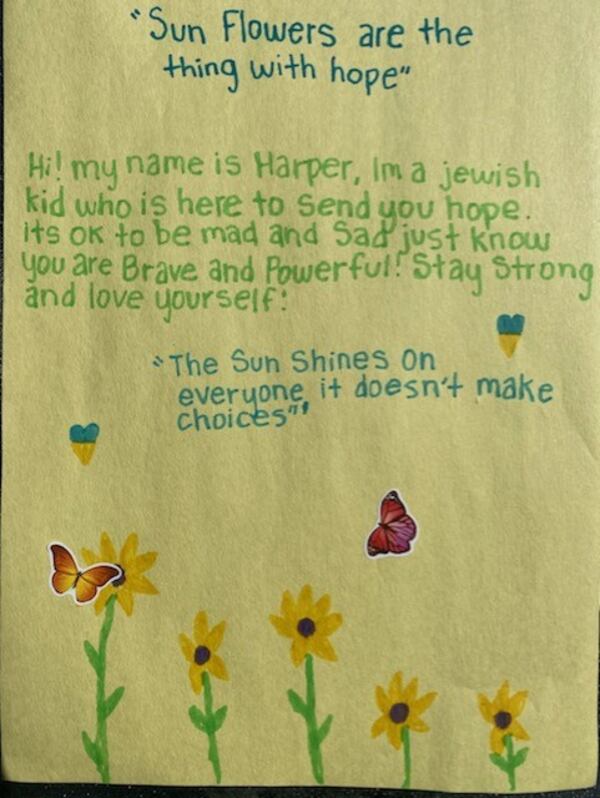 "Sun Flowers are the
thing with hope"
Hi! my name is Harper, Im a jewish
kid who is here to send you hope.
its ok to be mad and Sad just know
you are Brave and Powerful! Stay Strong
and love yourself!
"The Sun Shines On
everyone, it doesn't make
choices"